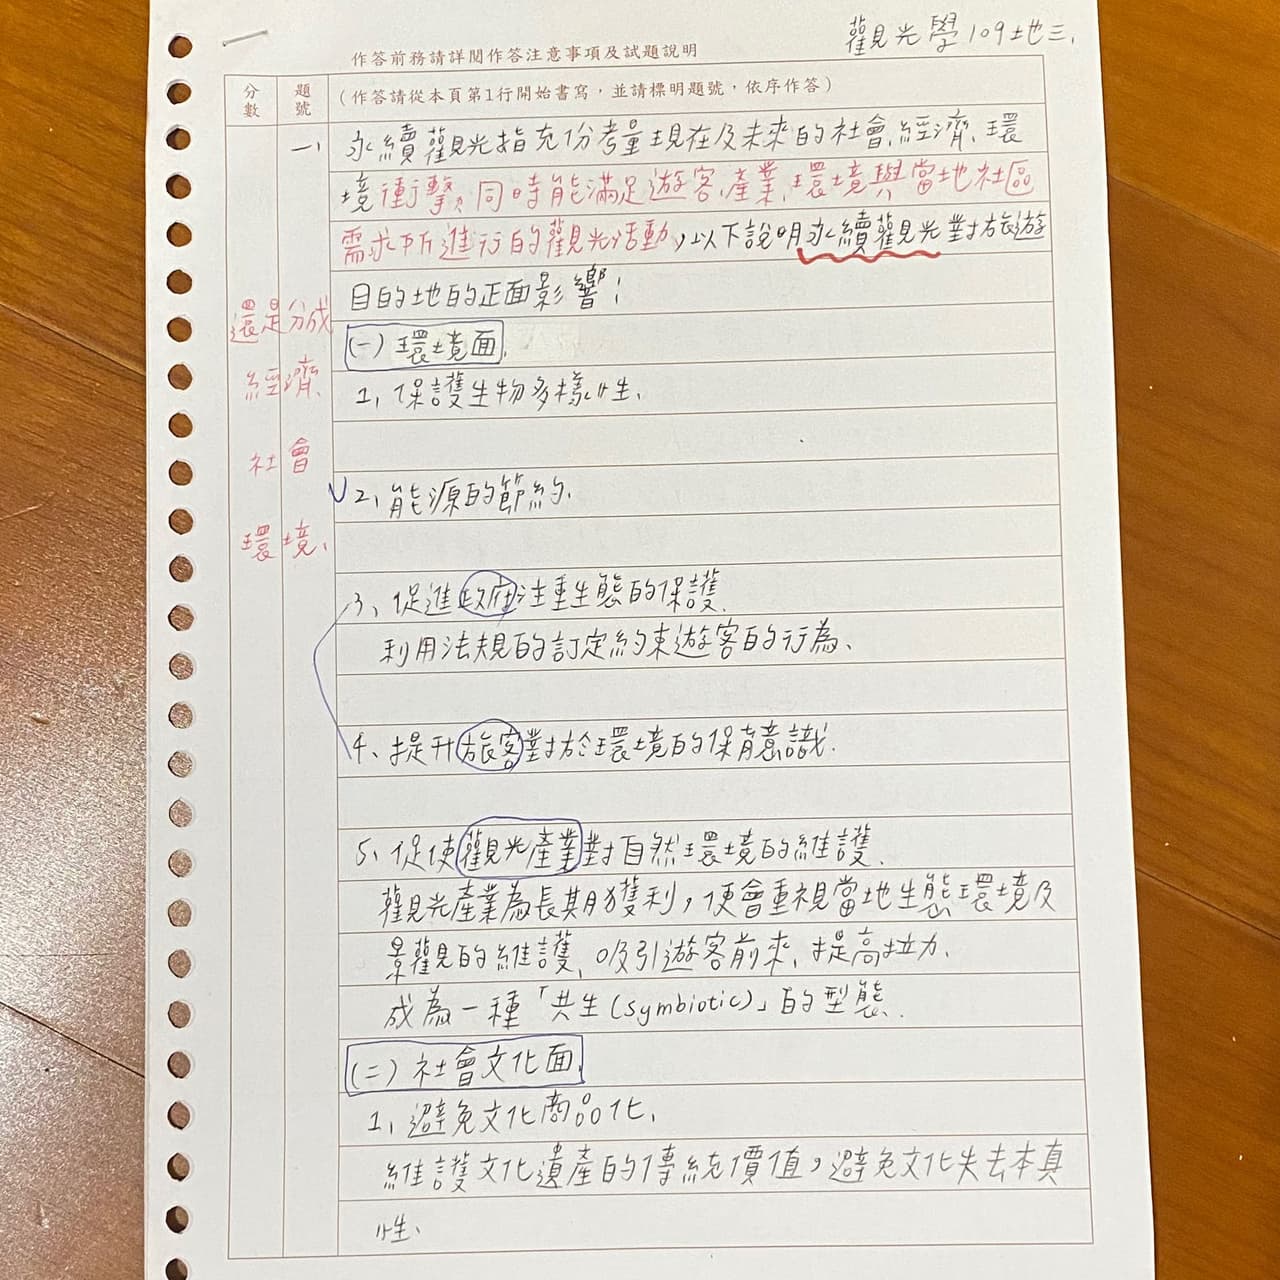 觀光學109地三.
作答前務請詳閱作答注意事項及試題說明
分數
題號
(作答請從本頁第1行開始書寫，並請標明題號，依序作答)
一、
永續觀光指充份考量現在及未來的社會、經濟、環
境衝擊，同時能滿足遊客、產業、環境與當地社區
需求所進行的觀光活動，以下說明永續觀光對旅遊
目的地的正面影響：
(一)環境面.
1、保護生物多樣性.
2、能源的節約.
3、促進政府注重生態的保護.
利用法規的訂定約束遊客的行為、
4、提升旅客對於環境的保育意識.
5、促使觀光產業對自然環境的維護.
觀光產業為長期獲利，便會重視當地生態環境及
景觀的維護、吸引遊客前來、提高拉力.
成為一種「共生(symbiotic)」的型態.
(二)社會文化面.
1、避免文化商品化、
維護文化遺產的傳統價值，避免文化失去本真
性、
還是分成
經濟、
社會
環境、